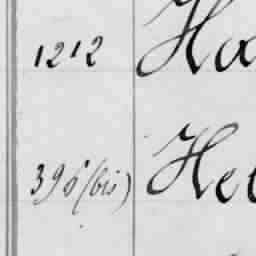 1212 Ho
396 (bis) Hel